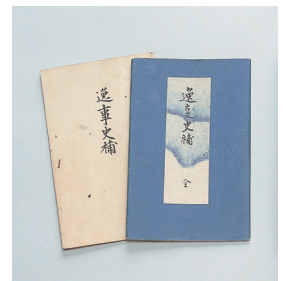 逸事史補
逸事史補
全